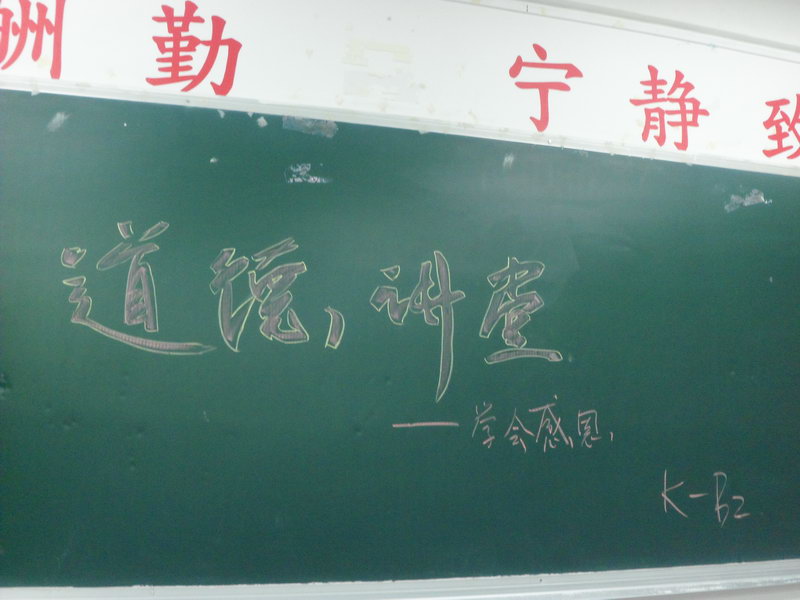 酬勤 宁静致
道德讲堂
—学会感恩
K-B2